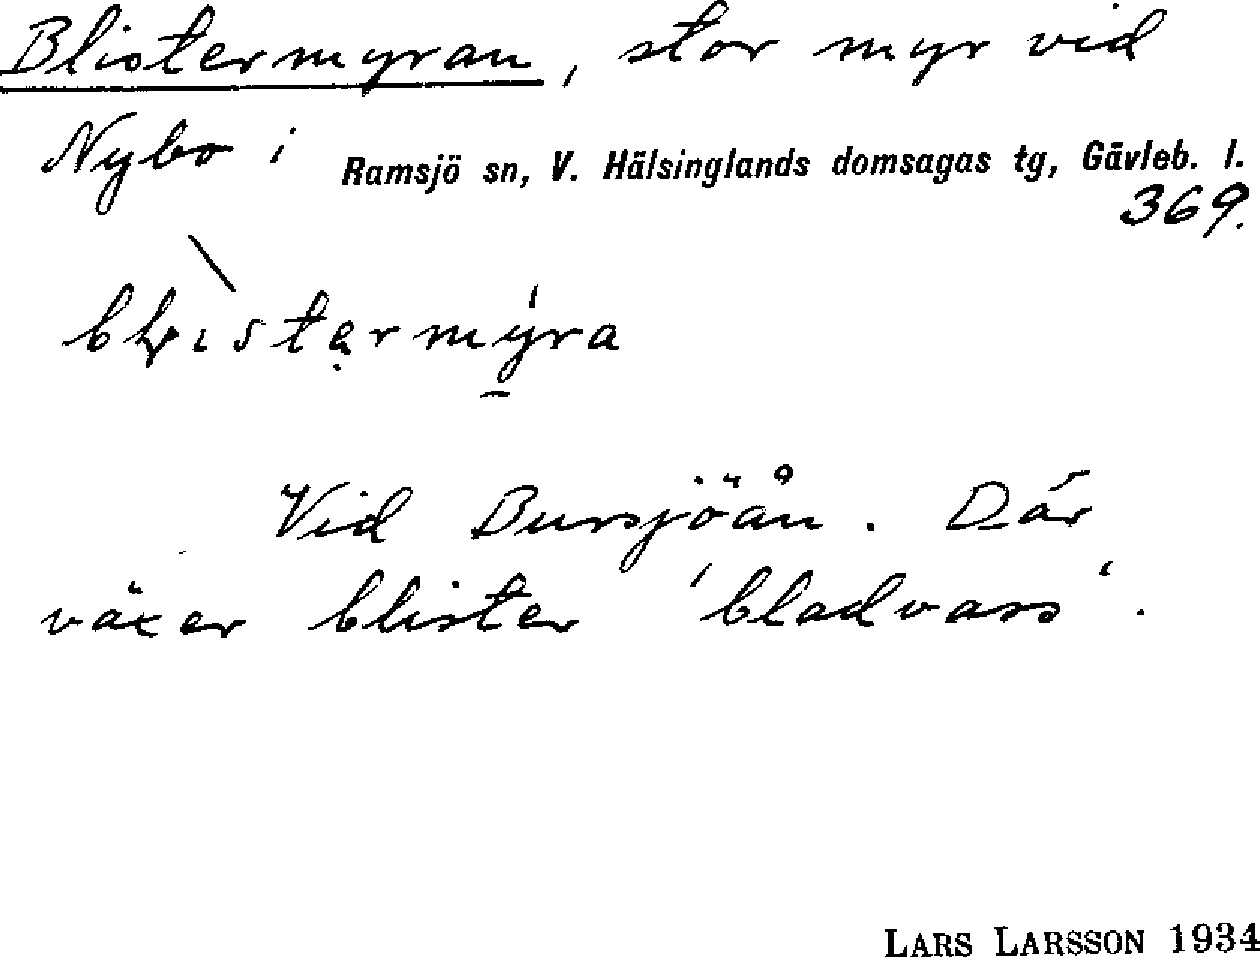 Blistermyran, stor myr vid
Nybo i Ramsjö sn, V. Hälsinglands domsagas tg, Gävleb. l.
369.
blìstẹrmý̱ra
Vid Bursjöån. Där
växer blister 'bladvass'.
LARS LARSSON 1934